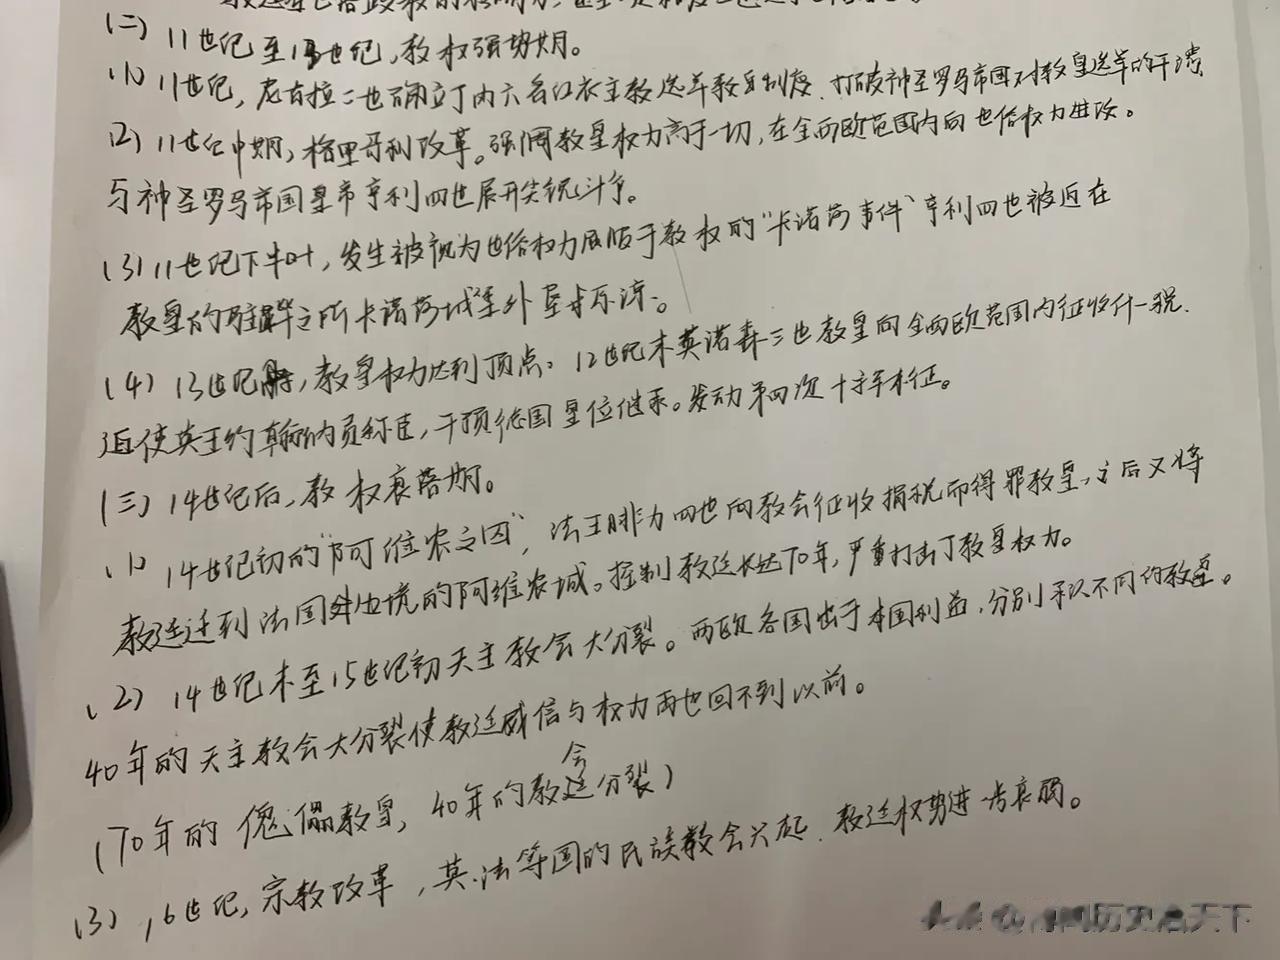 (二) 11世纪至13世纪,教权强势期。
(1) 11世纪,尼古拉二世确立了内六名红衣主教选举教皇制度.打破神圣罗马帝国对教皇选举的干涉
(2) 11世纪中期,格里哥利改革。强调教皇权力高于一切,在全西欧范围内向世俗权力进攻。
与神圣罗马帝国皇帝亨利四世展开尖锐斗争。
(3) 11世纪下半叶,发生被视为世俗权力屈服于教权的“卡诺莎事件”亨利四世被迫在
教皇的驻跸之所卡诺莎城堡外
(4) 13世纪,教皇权力达到顶点。12世纪末英诺森三世教皇向全西欧范围内征收什一税.
迫使英王约翰纳贡称臣,干预德国皇位继承。发动第四次十字军东征。
(三) 14世纪后,教权衰落期。
(1) 14世纪初的“阿维农之囚”,法王腓力四世向教会征收捐税而得罪教皇,之后又将
教廷迁到法国边境的阿维农城。控制教廷长达70年,严重打击了教皇权力。
(2) 14世纪末至15世纪初天主教会大分裂。西欧各国出于本国利益,分别承认不同的教皇。
40年的天主教会大分裂使教廷威信与权力再也回不到以前。
(70年的傀儡教皇,40年的教会分裂)
(3) 16世纪,宗教改革,英.法等国的民族教会兴起.教廷权势进一步衰弱。